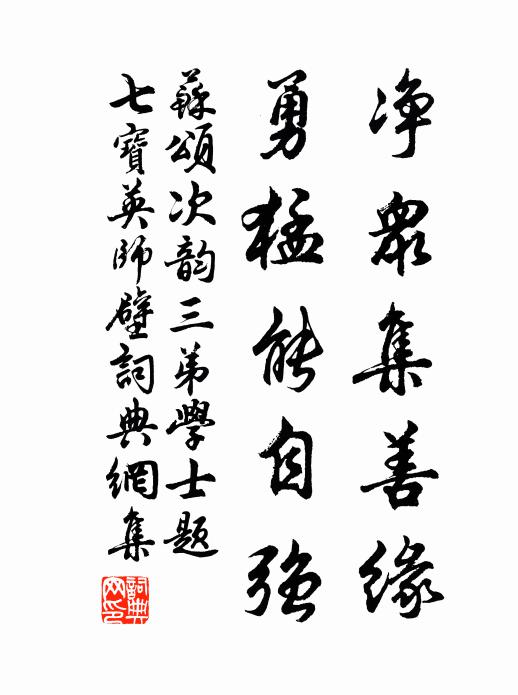 净衆集善缘
勇猛能自強
蘇頌次韵三弟學士題
七寶英師壁詞典網集
詞典網印